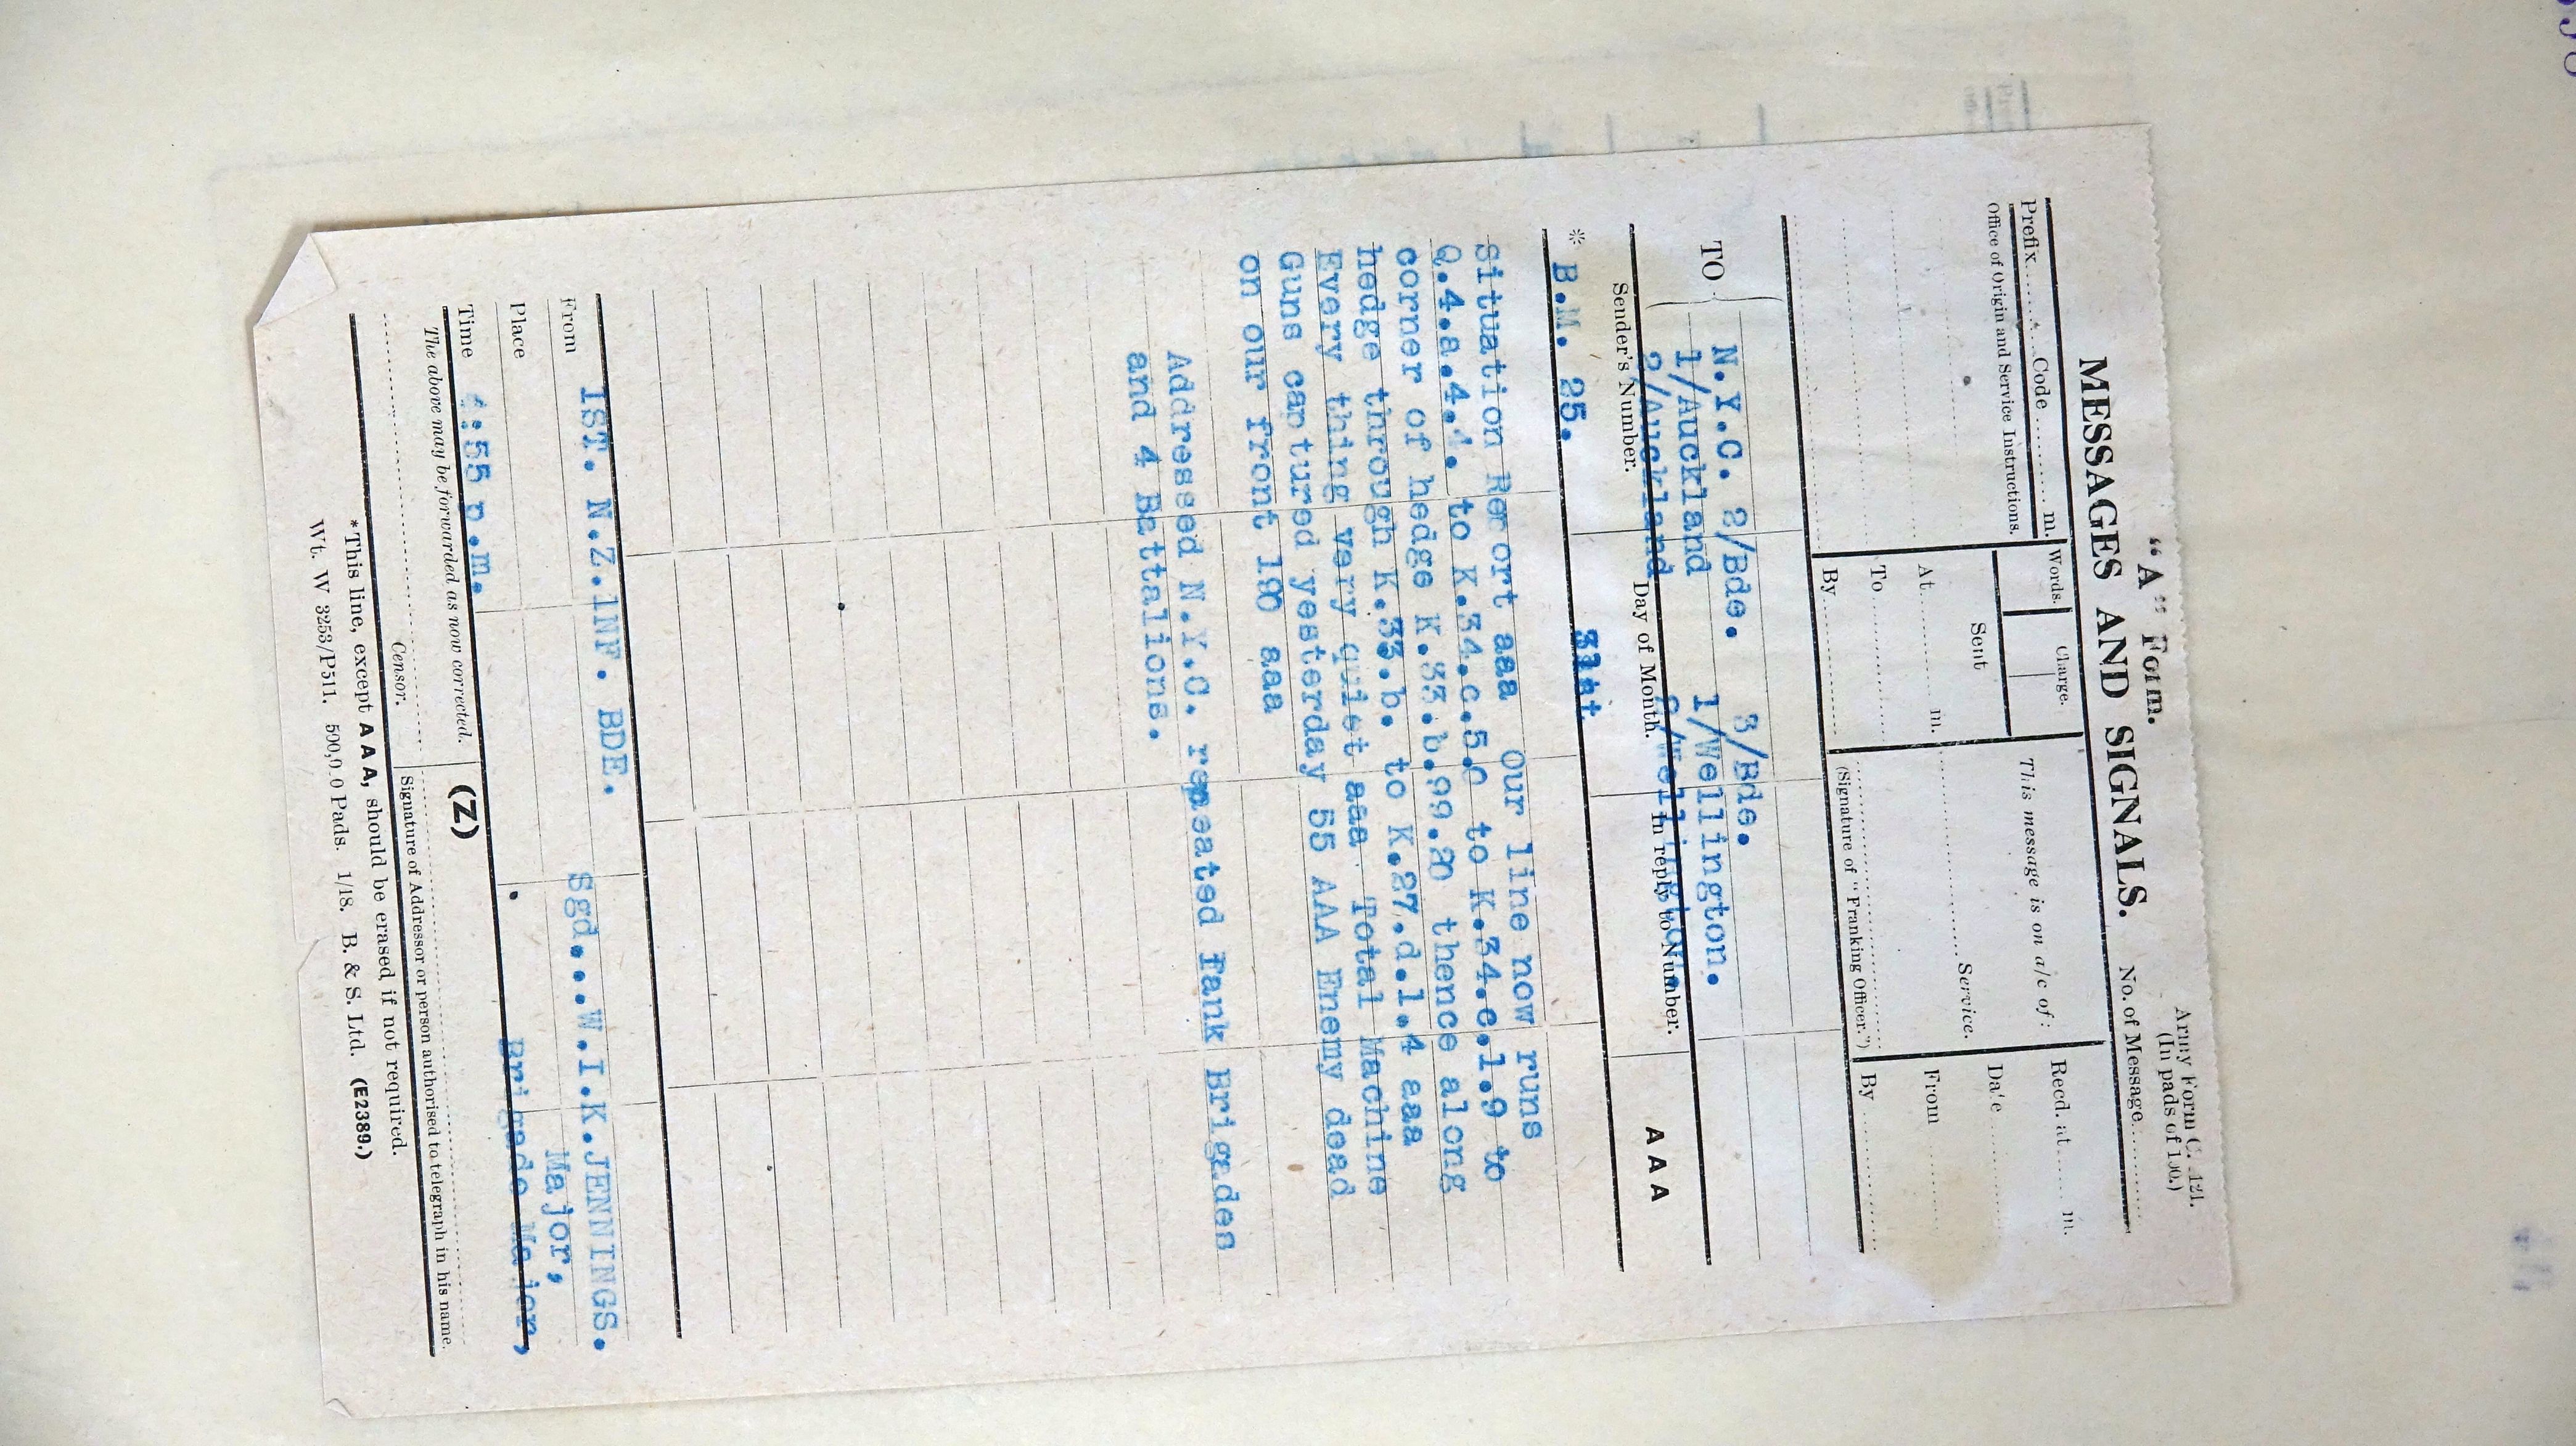 "A" Form.
Army Form C. 121.
(In pads of 100.)
MESSAGES AND SIGNALS.
No. of Message
Prefix Code m.
Words.
Charge.
This message is on a/c of:
Recd. at m.
Office of Origin and Service Instructions.
Sent
Date
At m.
Service.
From
To
By
(Signature of "Franking Officer.")
By
TO
N.Y.C. 2/Bde. 3/Bde.
1/Auckland 1/Wellington.
2/Auckland 2/Wellington.
Sender's Number.
Day of Month.
In reply to Number.
AAA
* B.M. 25. 31st
Situation Report aaa Our line now runs
Q.4.a.4. to K.34.c.5.0 to K.34.c.1.9 to
corner of hedge K.33.b.99.20 thence along
hedge through K.33.b. to K.27.d.1.4 aaa
Every thing very quiet aaa Total Machine
Guns captured yesterday 55 AAA Enemy dead
on our front 100 aaa
Addressed N.Y.C. repeated Tank Brigades
and 4 Battalions.
From 1ST. N.Z.INF. BDE.
Sgd...W.I.K.JENNINGS.
Place
Major,
Time :55 p.m.
Brigade Major,
The above may be forwarded as now corrected.
(Z)
Censor.
Signature of Addressor or person authorised to telegraph in his name.
*This line, except AAA, should be erased if not required.
Wt. W 3253/P511. 500,000 Pads. 1/18. B. & S. Ltd. (E2389.)